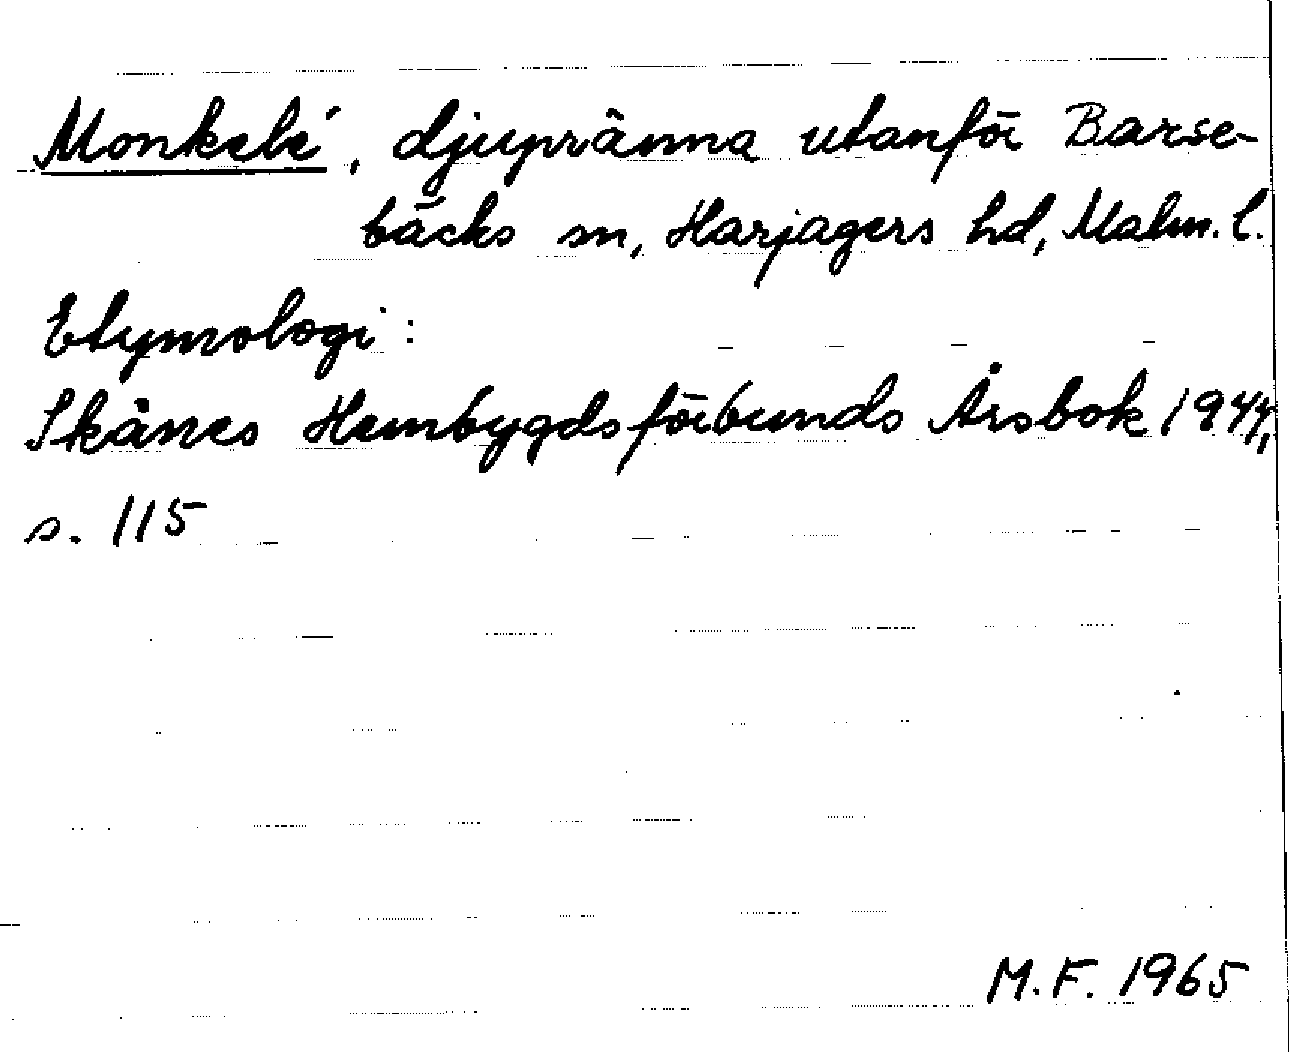 Monkelé, djupränna utanför Barse-
bäcks sn, Harjagers hd, Malm. l.
Etymologi:
Skånes Hembygdsförbunds Årsbok 1944,
s. 115
M.F. 1965